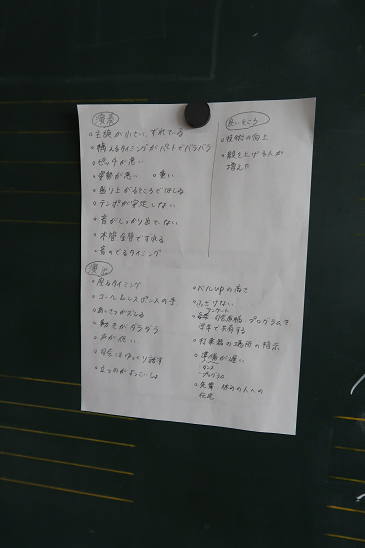 演奏
○主旋が小さい、ずれている
○構えるタイミングがパートでバラバラ
○ピッチが悪い
○姿勢が悪い ○重い
○盛り上がるところでばしる
○テンポが安定しない
○音がしっかり出ていない
○木管金管でずれる
○音のでるタイミング
良いところ
○技術の向上
○顔を上げる人が
増えた
演出
○座るタイミング
○コール&レスポンスの手
○あいさつがズレる
○動きがダラダラ
○声が低い
○司会はゆっくり話す
○ベルupの高さ
○ふざけない
アンケート
プログラムを
学年で共有する
○打楽器の場所の指示
○準備が遅い
・ダンス
・プログラム
休みの人への
伝達